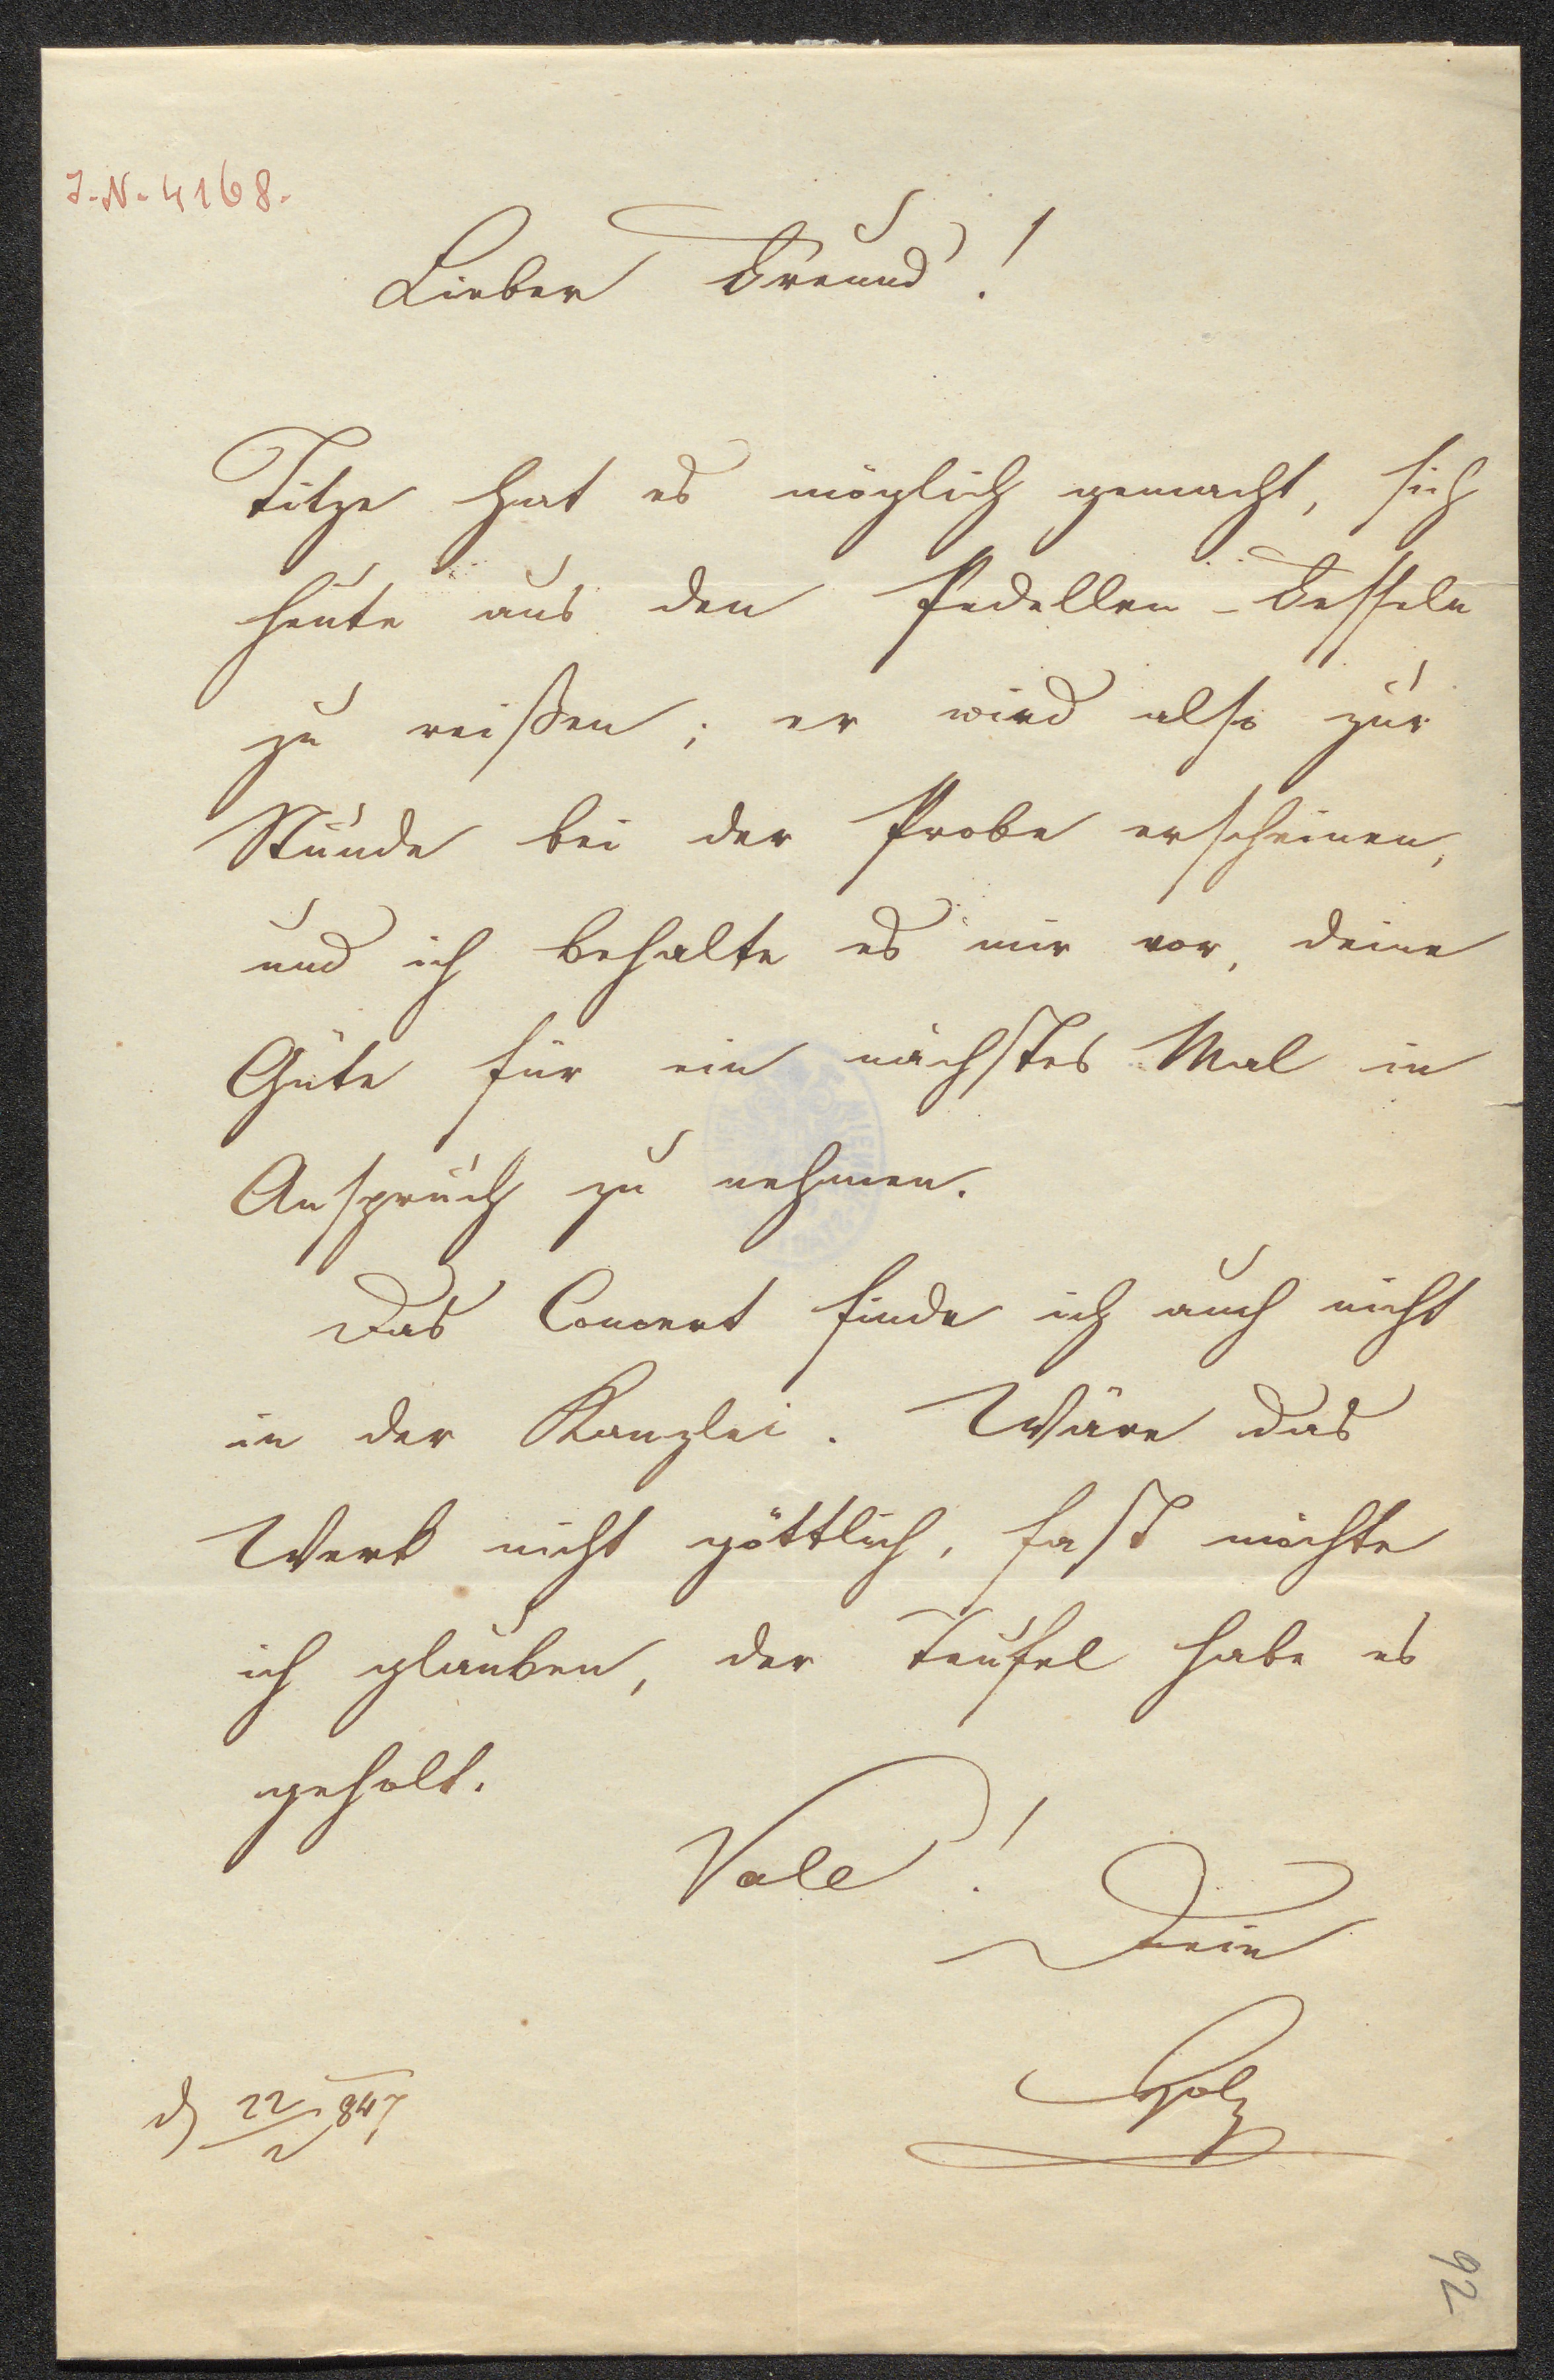 J.-N. 4168.
Lieber Freund!
Titze hat es möglich gemacht, sich
heute aus den Pedellen-Fesseln
zu reißen; er wird also zur
Stunde bei der Probe erscheinen,
und ich behalte es mir vor, deine
Güte für ein nächstes Mal in
Anspruch zu nehmen.
Das Concert finde ich auch nicht
in der Kanzlei. Wäre das
Werk nicht göttlich, fast möchte
ich glauben, der Teufel habe es
geholt.
Vale!
Dein
Holz
d 22/2 847
92